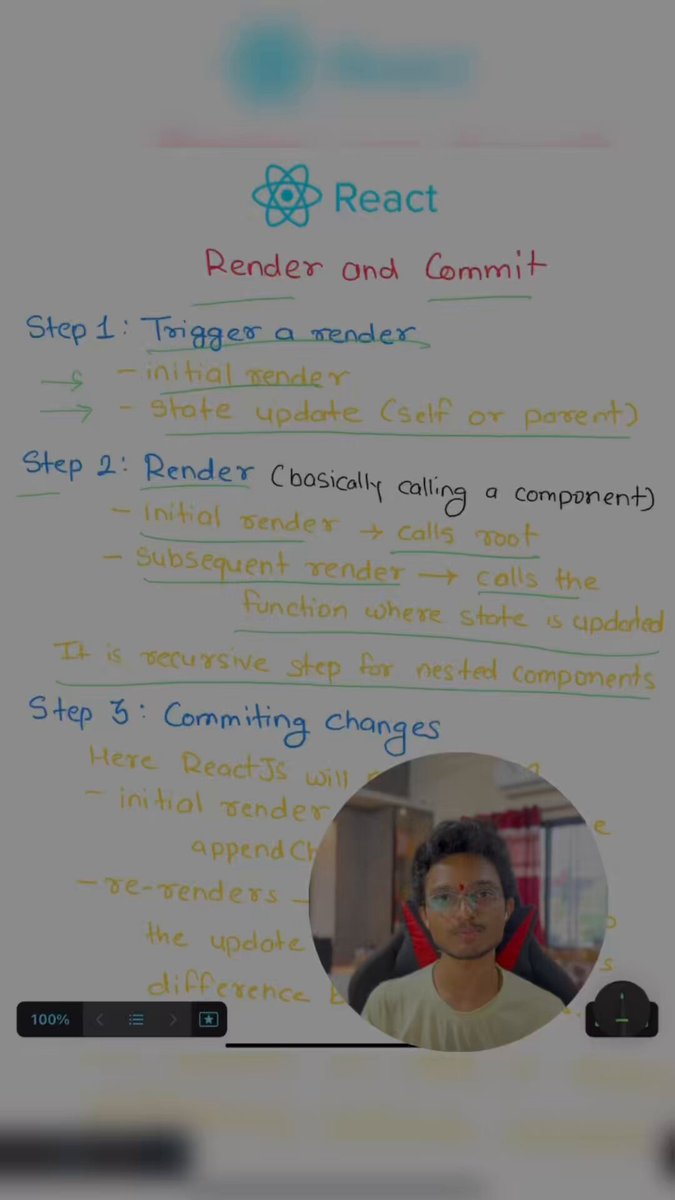 React
Render and Commit
Step 1: Trigger a render
- initial render
- State update (self or parent)
Step 2: Render (basically calling a component)
- initial render → calls root
- subsequent render → calls the
function where state is updated
It is recursive step for nested components
Step 3: Commiting changes
Here ReactJs will
- initial render
appendCh
- re-renders
the update
difference
100%